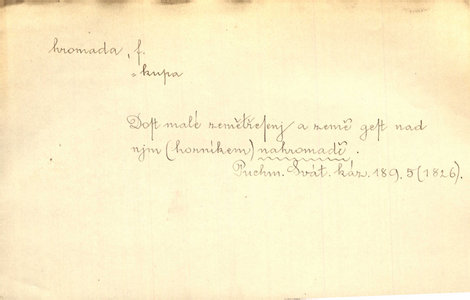 hromada, f.
= kupa
Dost malé zemětřesenj a země gest nad
njm (hornikem) nahromadě.
Puchm. Svát. káz. 189. 5 (1826).